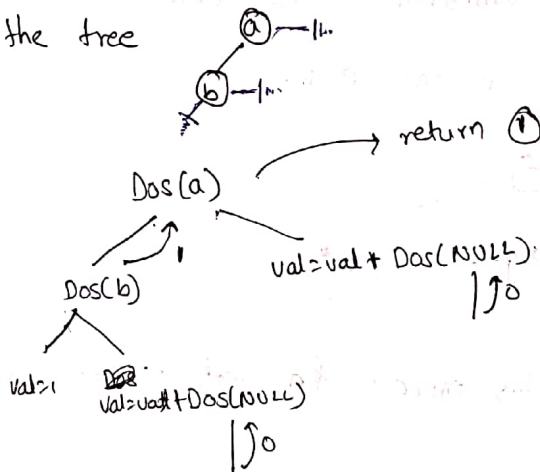 the tree
a
b
return 1
Dos(a)
1
val=val+ Dos(NULL)
Dos(b)
0
val=1
val=val+Dos(NULL)
0